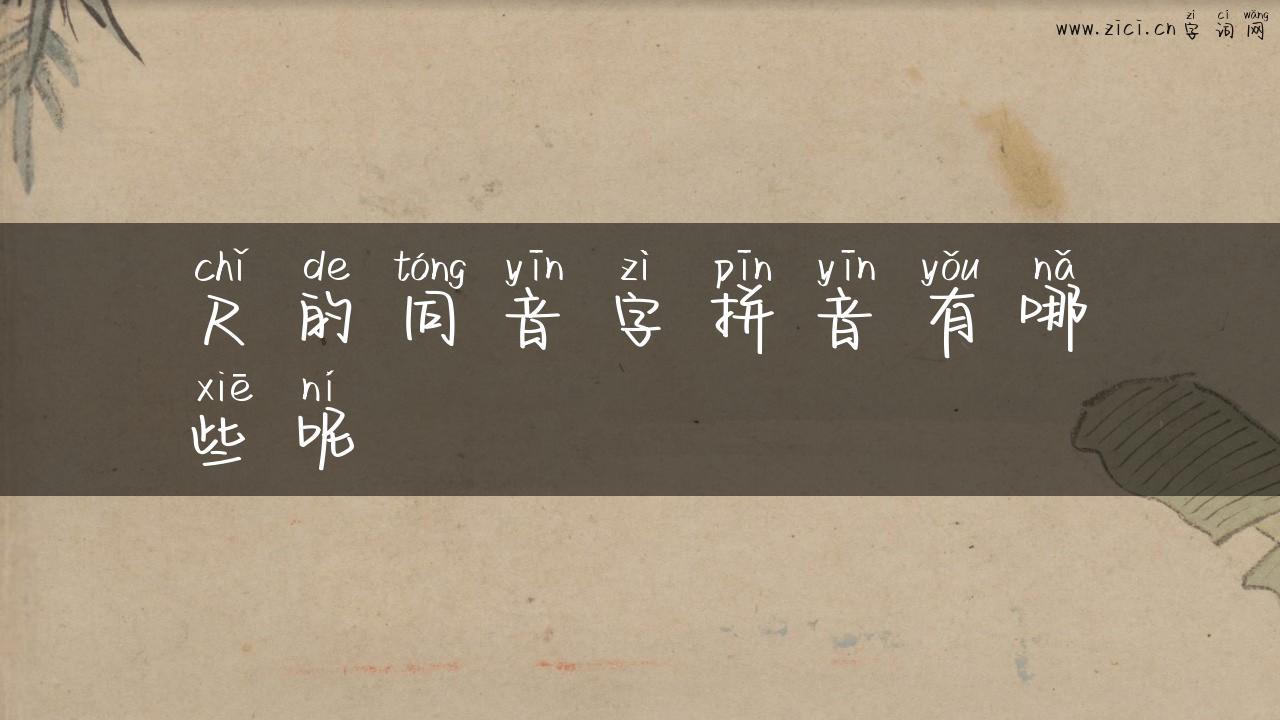 zì cí wǎng
www.zici.cn 字词网
chǐ de tóng yīn zì pīn yīn yǒu nǎ
尺的同音字拼音有哪
xiē ní
些呢